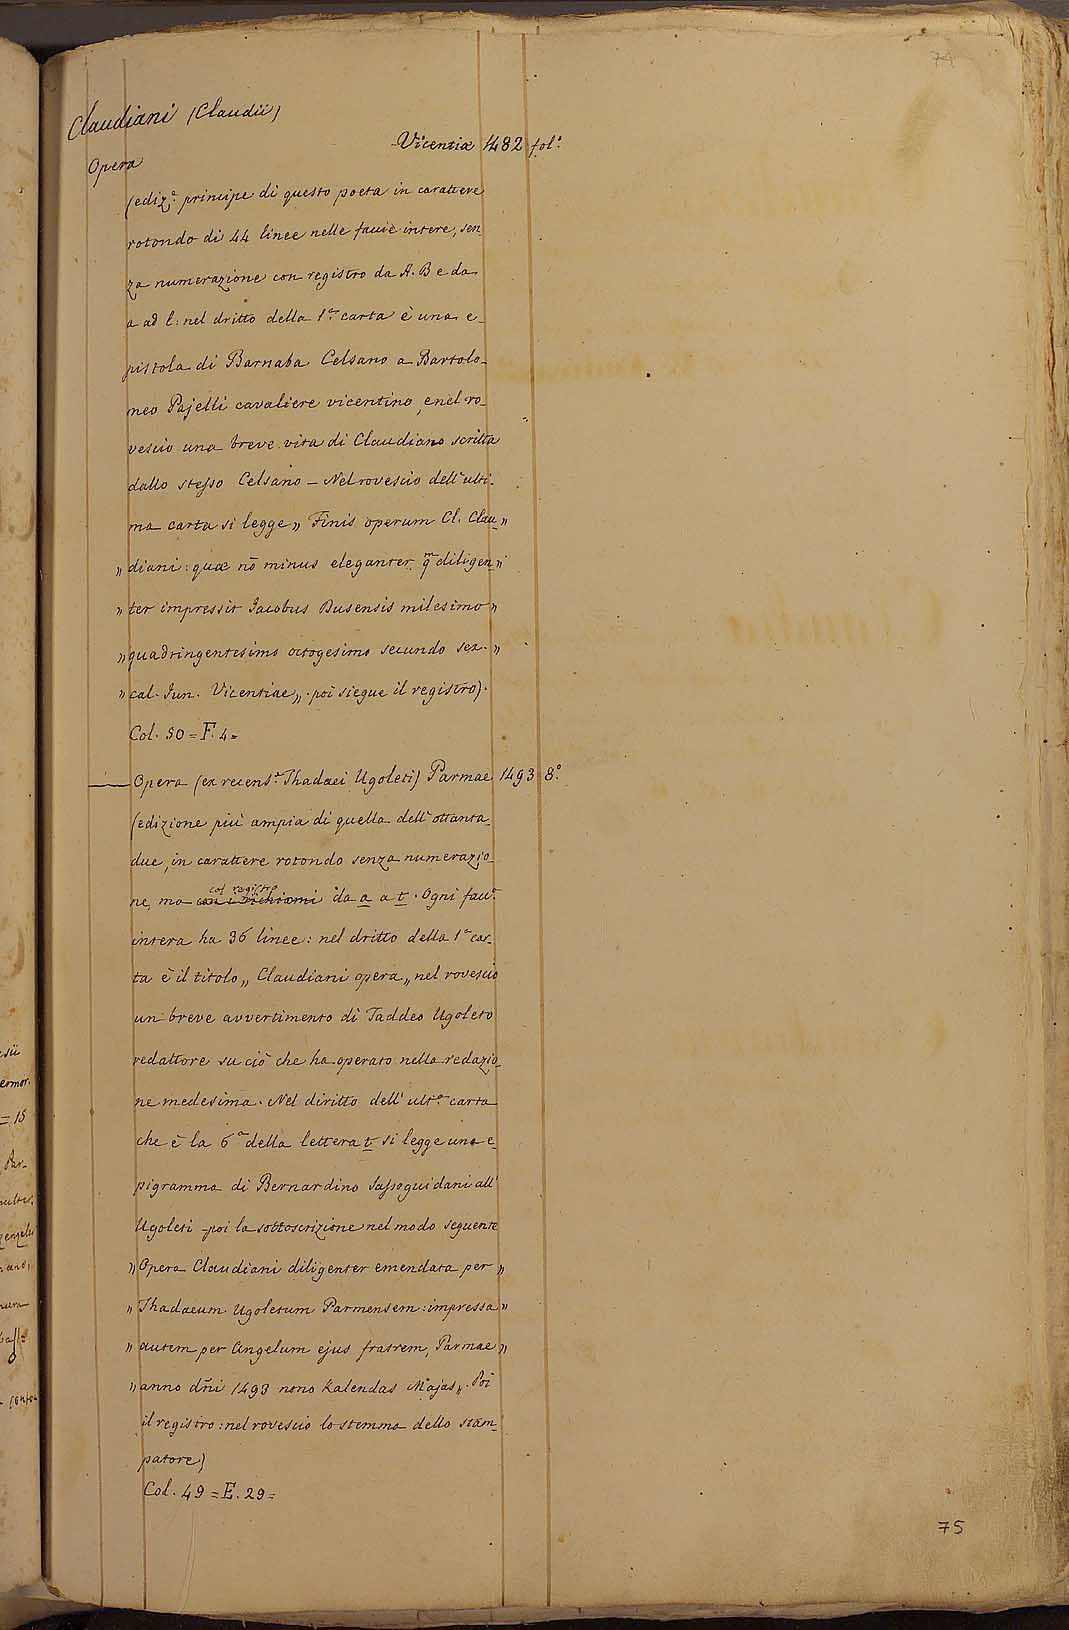 74
Claudiani (Claudii)
Vicentiæ 1482 fol.º
Opera
(ediz.ᵉ principe di questo poeta in carattere
rotondo di 44 linee nelle faccie intere, sen-
za numerazione con registro da A. B e da
a ad l: nel dritto della 1.ª carta è una e-
pistola di Barnaba Celsano a Bartolo-
meo Pajelli cavaliere vicentino, e nel ro-
vescio una breve vita di Claudiano scritta
dallo stesso Celsano - Nel rovescio dell'ulti-
ma carta si legge „ Finis operum Cl. Clau- „
„ diani: quæ nō minus eleganter qᵐ diligen „
„ ter impressit Jacobus Dusensis milesimo „
„ quadringentesimo octogesimo secundo sex. „
„ cal. Jun. Vicentiae „. poi siegue il registro).
Col. 50 = F. 4 =
— Opera (ex recens.ᵉ Thadaei Ugoleti) Parmae 1493 8.º
(edizione più ampia di quella dell'ottanta-
due, in carattere rotondo senza numerazio-
col registro
ne, ma con i richiami da a a t. Ogni facc.ª
intera ha 36 linee: nel dritto della 1.ª car-
ta è il titolo „ Claudiani opera „ nel rovescio
un breve avvertimento di Taddeo Ugoleto
redattore su ciò che ha operato nella redazio-
ne medesima. Nel diritto dell' ult.ª carta
che è la 6.ª della lettera t si legge una e-
pigramma di Bernardino Sassoguidani all'
Ugoleti - poi la sottoscrizione nel modo seguente
„ Opera Claudiani diligenter emendata per „
„ Thadaeum Ugoletum Parmensem: impressa „
„ autem per Angelum ejus fratrem, Parmae „
„ anno dñi 1493 nono Kalendas Majas „. Poi
il registro: nel rovescio lo stemma dello stam-
patore)
Col. 49 = E. 29 =
75